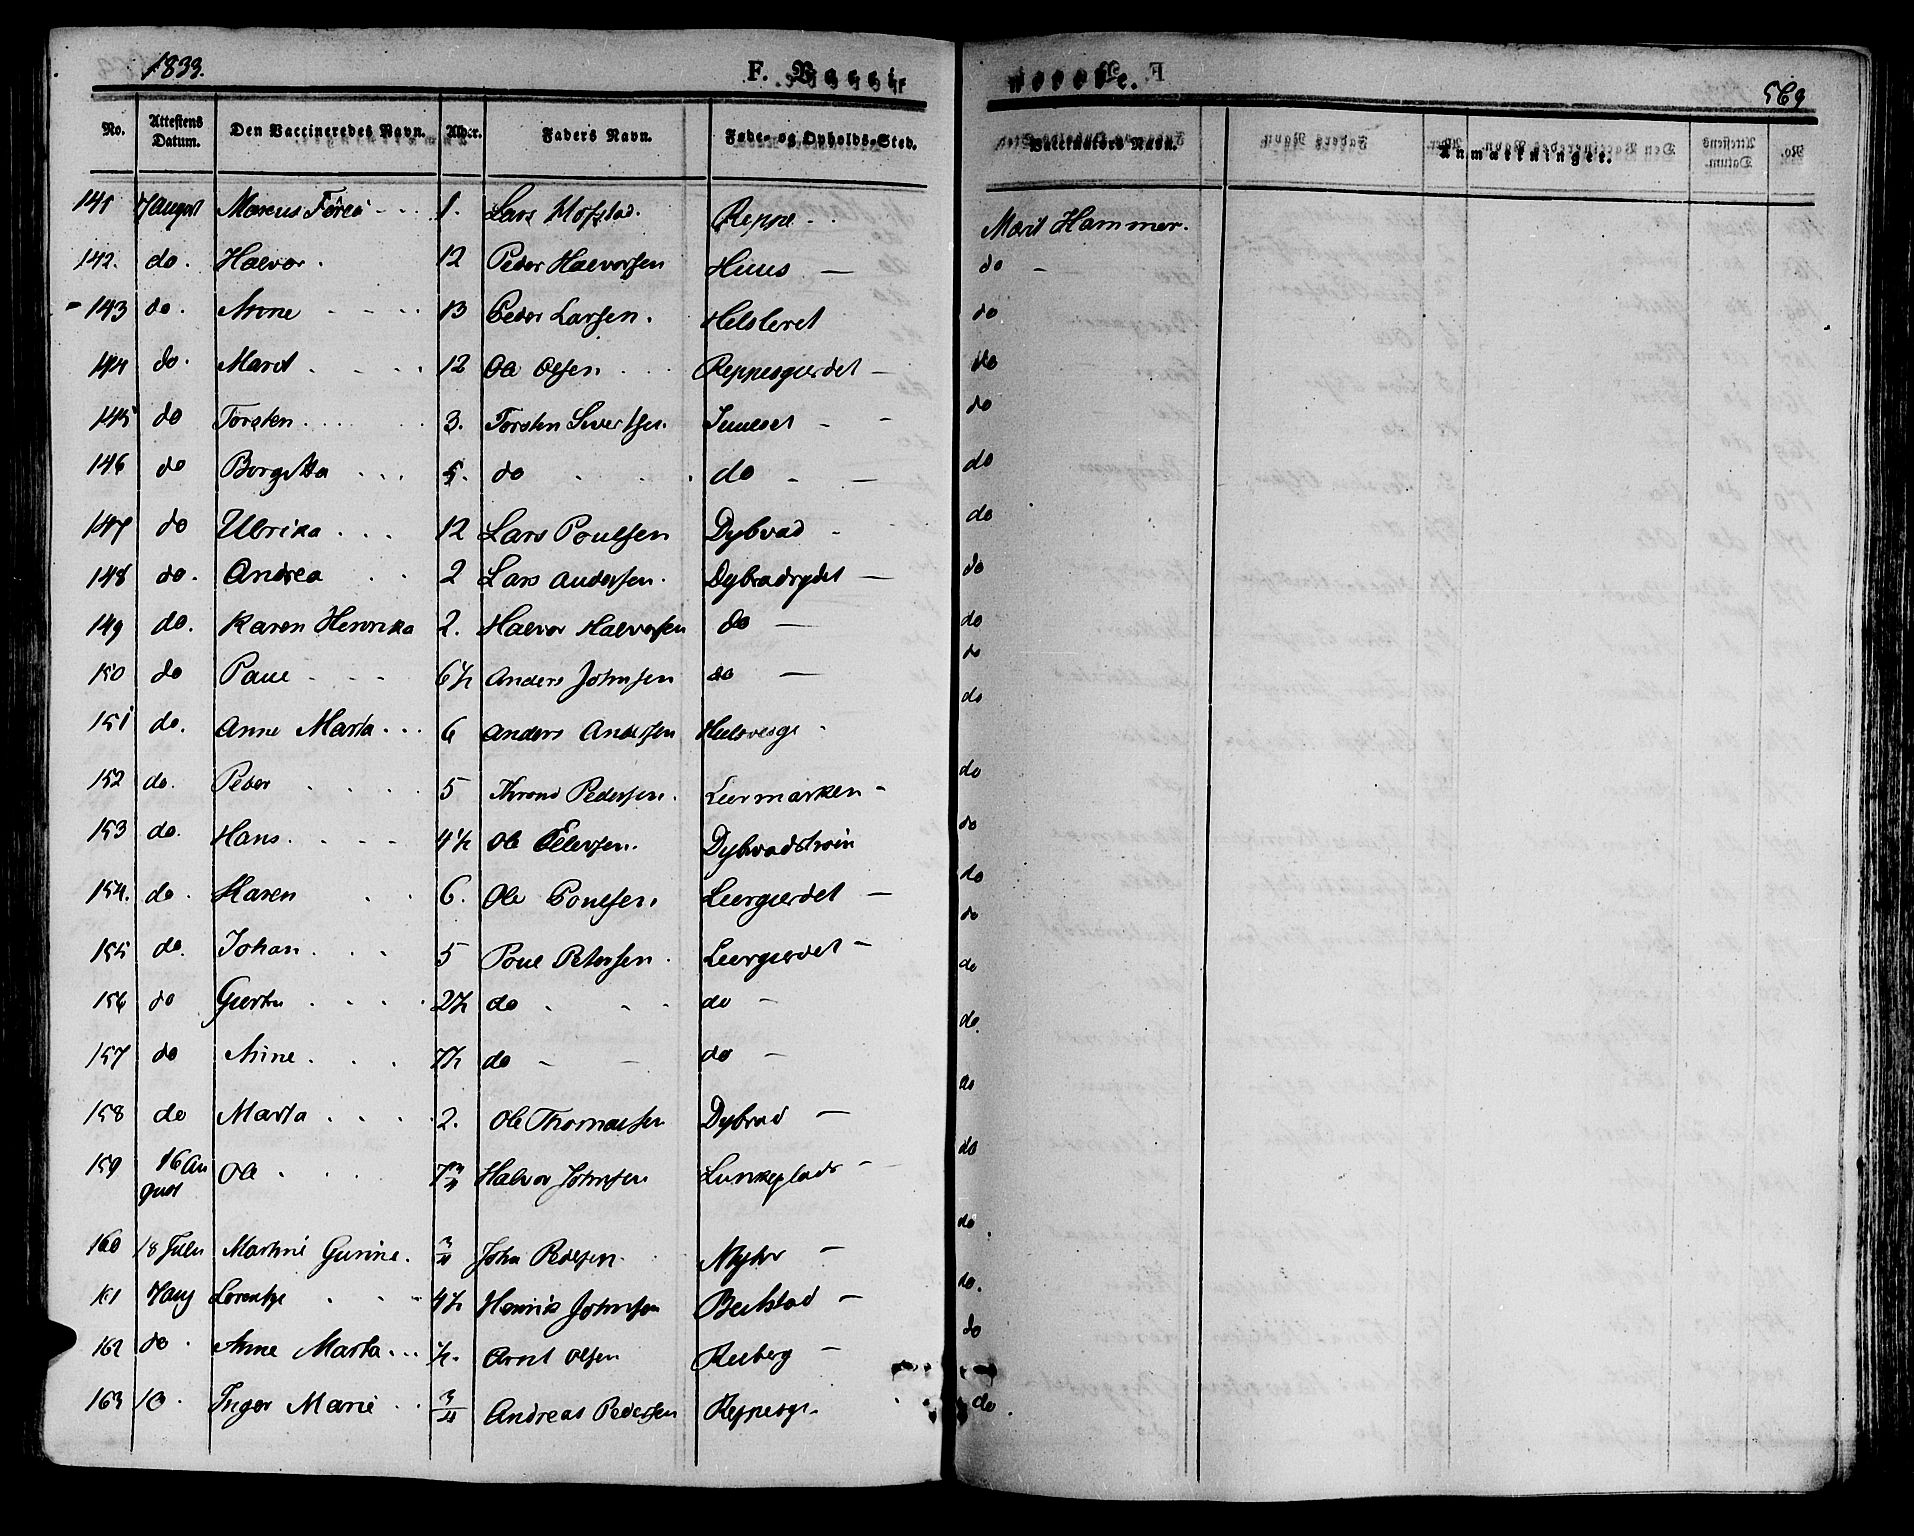 1833.
F. Vaccinerede.
569
No. Attestens Datum. Den Vaccineredes Navn. Alder. Faders Navn. Føde- og Opholds-Sted. Vaccinators Navn. Anmærkninger.
141 7 August Marcus Föreá 1. Lars Hofstad. Reppe Marit Hammer.
142. do. Halvor. 12 Peder Halvorsen Huus do
143 do. Anne 13 Peder Larsen. do
144 do. Marit 12 Ole Olsen Reppesgierdet do
145 do Torsten 3. Torsten Sivertsen. do
146 do Borgitta 5. do do do
147 do Ulrika 12 Lars Poulsen Dybvad do
148 do. Andrea 2 Lars Andersen. Dybvadrydet do
149 do. Karen Henrika 2. Halvor Halvorsen do do
150 do Paul 6½ Anders Johnsen do do
151 do. Anne Marta 6 Anders Andersen do
152 do. Peder 5 Thrond Pedersen. Leermarken do
153 do. Hans. 4½ Ole Ellevsen. Dybvadstrøen do
154. do. Karen 6. Ole Poulsen. Leergierdet do
155 do. Johan 5 Poul Petersen. Leergierdet do
156 do 2½ do do do
157 do Anne 7½ do do do.
158 do Marta 2. Ole Thomassen Dybvad do
159 16 August Ole 7¾ Halvor Johnsen do
160 18 Julii Martine Gurine. ¾ John Pedersen. do
161 7 Aug Lorentze 4½ Henrik Johnsen Beistad do.
162 do Anne Marta ½. Arnt Olsen Reeberg do
163 Inger Marie ¾ Andreas Pedersen Reppesge. do